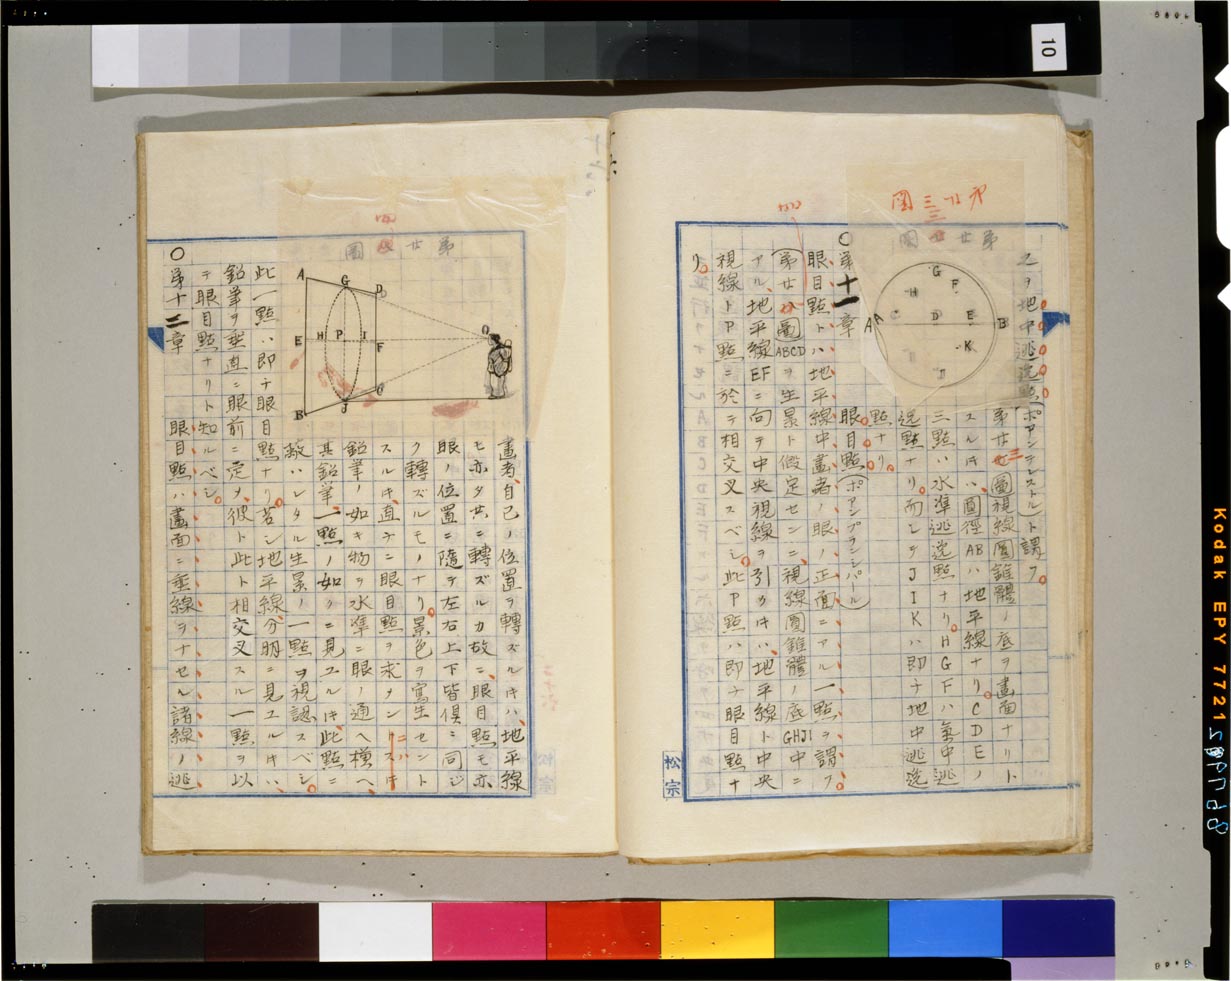 第廿三圖
G
H F
A C D E B
K
之ヲ地中逃迯點(ポアンテレストル)ト謂フ。
第廿三圖視線圓錐體ノ底ヲ畫面ナリト
スルキハ、圓徑ABハ地平線ナリ。CDEノ
三點ハ水準逃迯點ナリ。HGFハ氣中逃
迯點ナリ。而シテJIKハ即チ地中逃迯
點ナリ。
○第十一章 眼目點(ポアンプランシパル)
眼目點トハ地平線中畫者ノ眼ノ正面ニアル一點ヲ謂フ。
(第廿 圖ABCDヲ生景ト假定センニ、視線圓錐體ノ底GHJI中ニ
アル、地平線EFニ向テ中央視線ヲ引クキハ、地平線ト中央
視線トP點ニ於テ相交叉スベシ。此P點ハ即チ眼目點ナ
リ。
松宗
第廿 圖
A G D
O
E H P I F
B J C
畫者、自己ノ位置ヲ轉ズルキハ、地平線
モ亦タ共ニ轉ズルカ故ニ、眼目點モ亦
眼ノ位置ニ隨テ左右上下皆倶ニ同ジ
ク轉ズルモノナリ。景色ヲ寫生セント
スルキ、直チニ眼目點ヲ求メントスルキ
鉛筆ノ如キ物ヲ水準ニ眼ノ通へ横へ、
其鉛筆、一點ノ如クニ見ユルキ、此點ニ
蔽ハレタル生景ノ一點ヲ視認スベシ。
此一點ハ即チ眼目點ナリ。若シ地平線分明ニ見エルキハ、
鉛筆ヲ垂直ニ眼前ニ定メ、彼ト此ト相交叉スル一點ヲ以
テ眼目點ナリト知ルベシ。
○第十二章 眼目點ハ畫面ニ垂線ヲナセル諸線ノ逃
10
Kodak EPY 7721